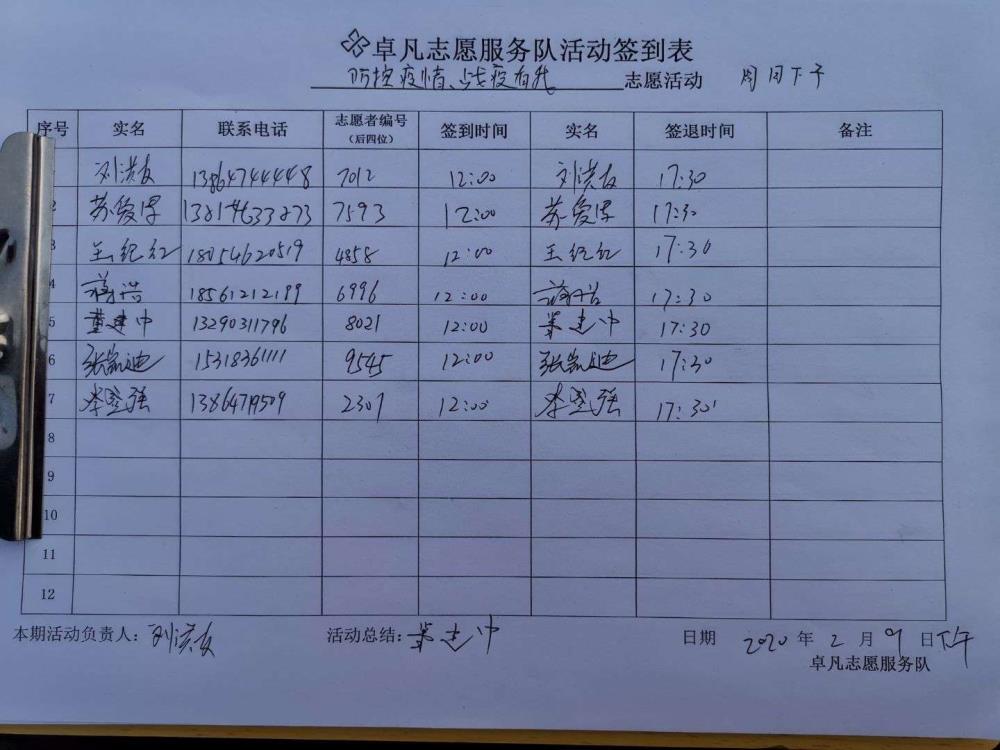 卓凡志愿服务队活动签到表
防控疫情、战疫有我 志愿活动 周日下午
序号 实名 联系电话 志愿者编号（后四位） 签到时间 实名 签退时间 备注
刘洪友 13864744448 7012 12:00 刘洪友 17:30
2 苏爱厚 7593 12:00 苏爱厚 17:30
3 王纪红 18054620519 4858 12:00 王纪红 17:30
4 蒋浩 18561212199 6996 12:00 蒋浩 17:30
5 董建中 13290311796 8021 12:00 董建中 17:30
6 张凯迪 15318361111 9545 12:00 张凯迪 17:30
7 强 2307 12:00 强 17:30
8
9
10
11
12
本期活动负责人：刘洪友 活动总结：董建中 日期 2020 年 2 月 9 日下午
卓凡志愿服务队